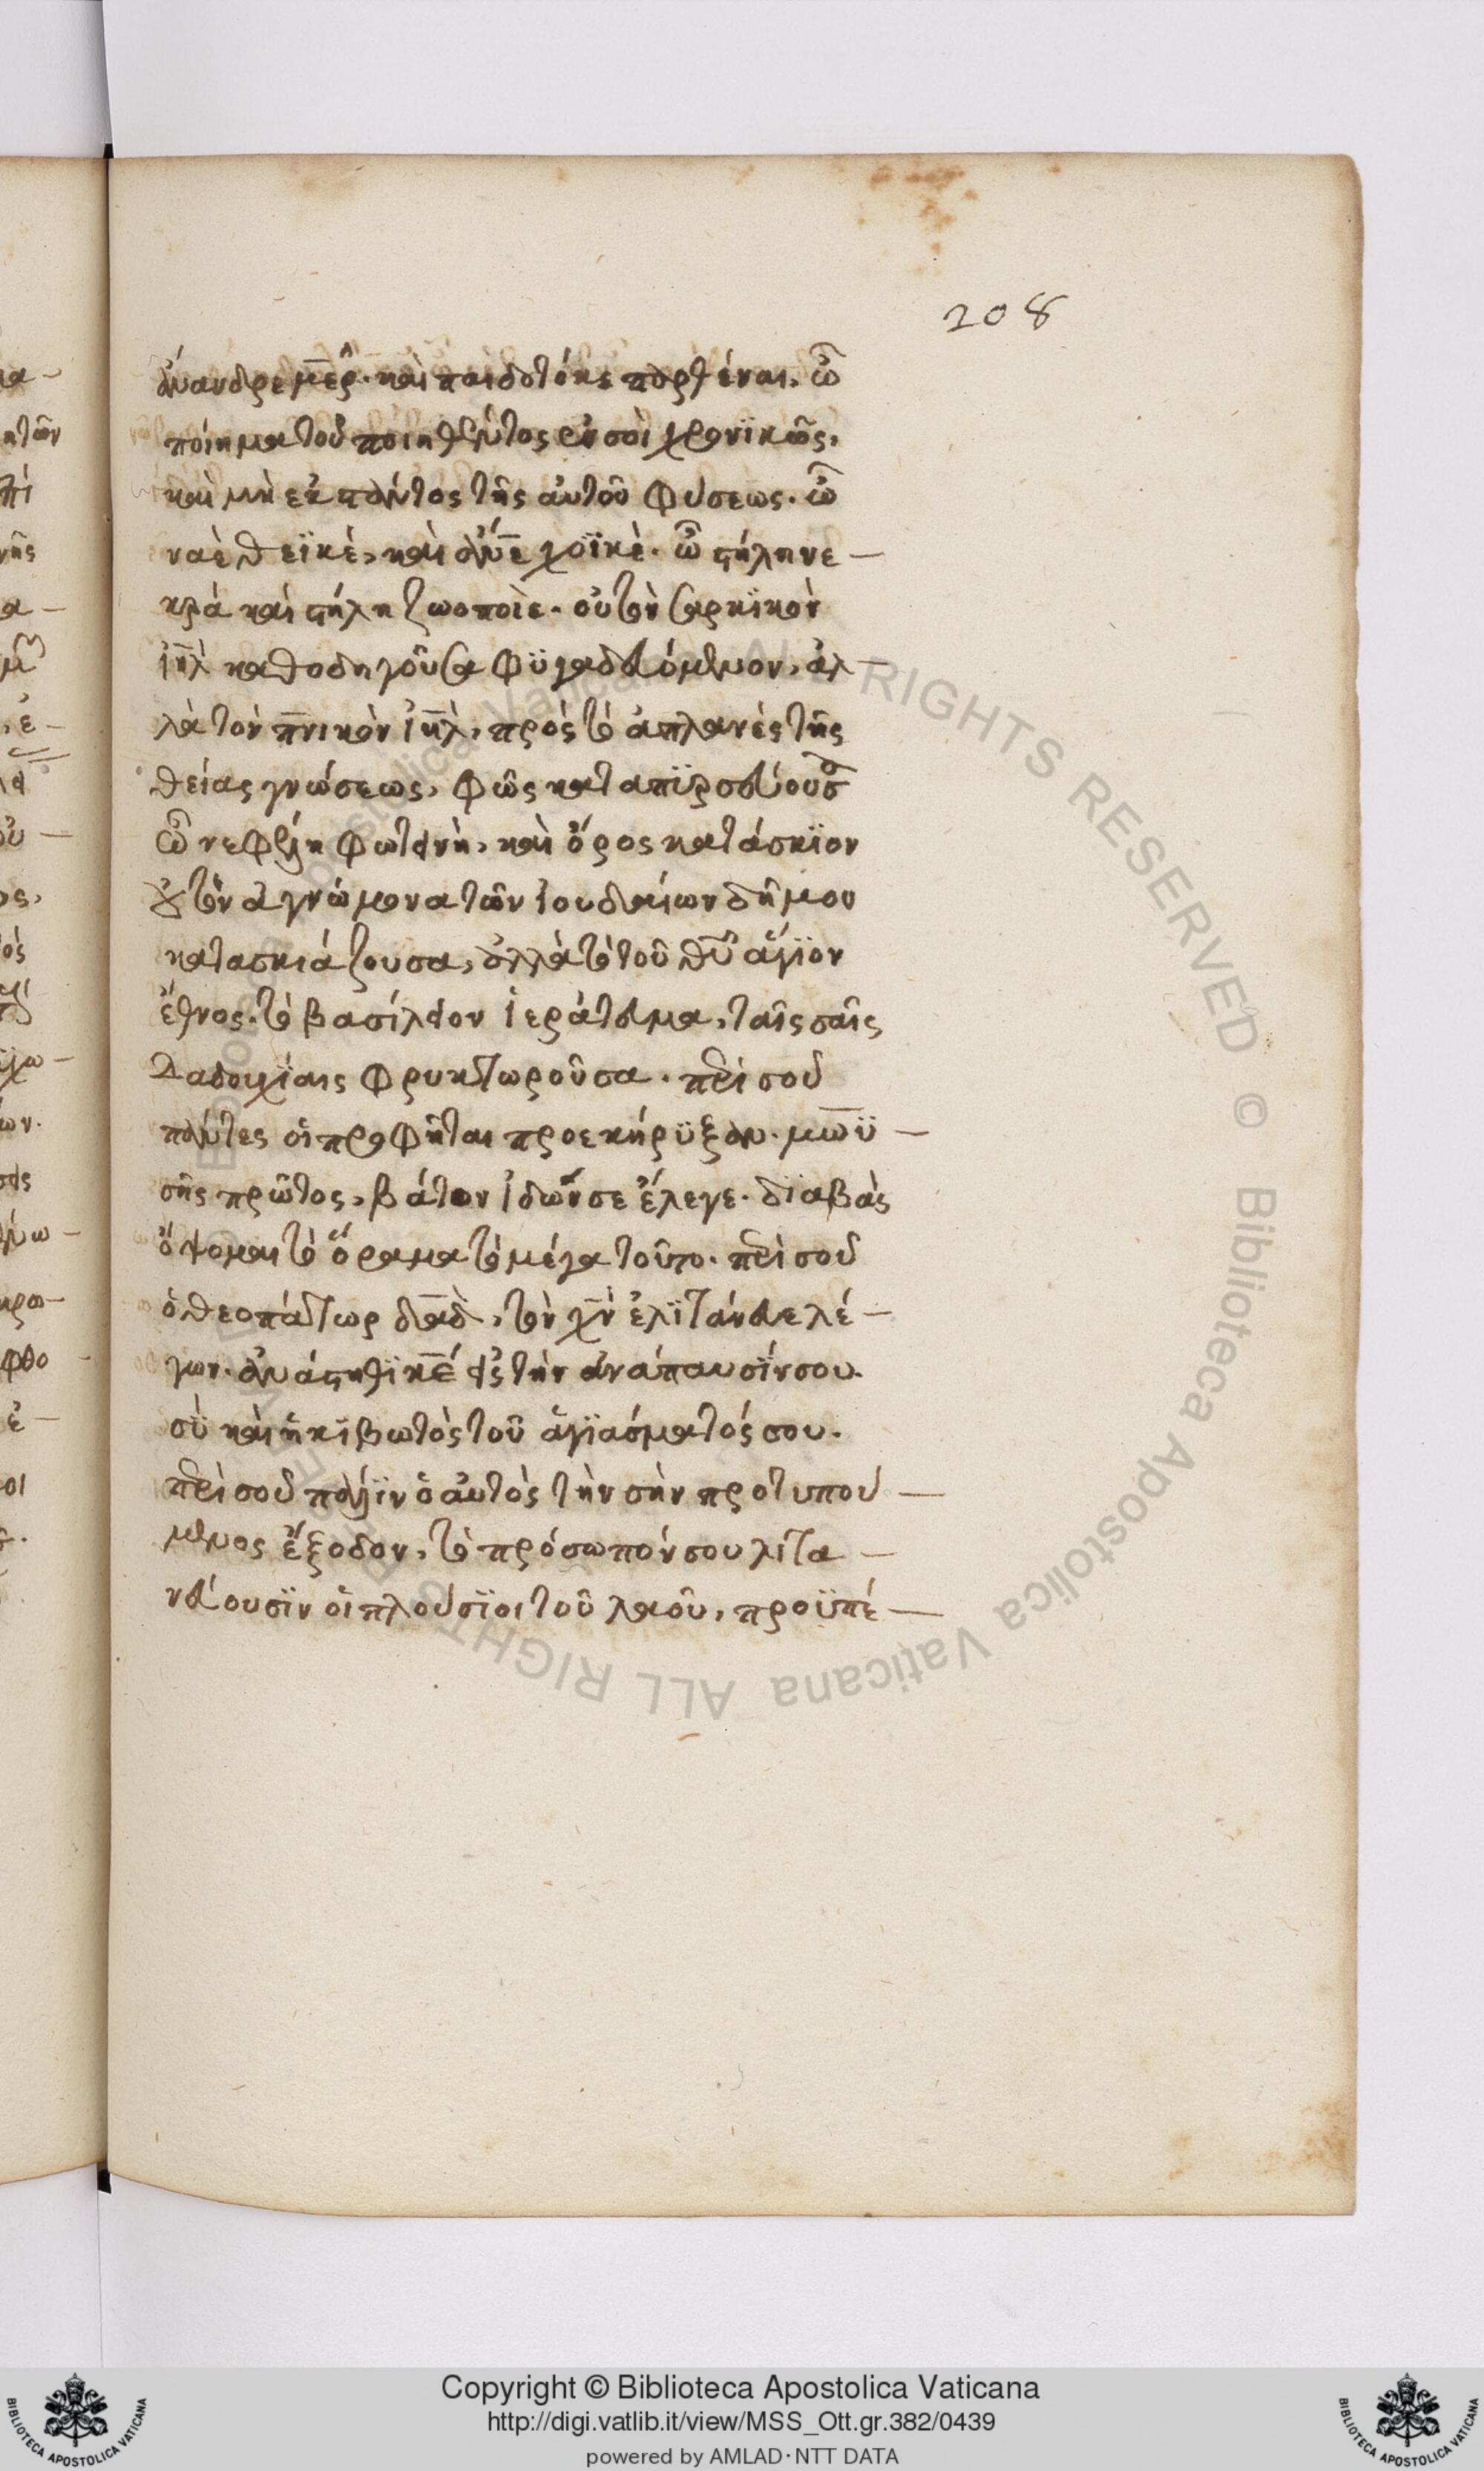 208
ἄνανδρε μῆερ. καὶ παιδοτόκε παρθένε. ὦ
ποίημα τοῦ ποιηθέντος ἐν σοὶ χρονϊκῶς,
καὶ μὴ ἐκ παντὸς τῆς αὐτοῦ φύσεως. ὦ
ναὲ θεϊκὲ, καὶ χοϊκὲ. ὦ στήλη νε —
κρὰ καὶ στήλη ζωοποιὲ. οὐ τὸν σαρκϊκὸν
ι̅η̅λ̅ καθοδηγοῦσα φϋγαδευόμενον, ἀλ —
λὰ τὸν π̅ν̅ικὸν ι̅η̅λ̅, πρὸς τὸ ἀπλανὲς τῆς
θείας γνώσεως, φῶς καταπϋρσεύουσα
ὦ νεφέλη φωτεινὴ, καὶ ὄρος κατάσκϊον
οὐ τὸν ἀγνώμονα τῶν ἰουδαίων δῆμον
κατασκιάζουσα, ἀλλὰ τὸ τοῦ θ̅υ̅ ἅγϊον
ἔθνος. τὸ βασίλειον ἱεράτευμα, ταῖς σαῖς
δαδουχίαις φρυκτωροῦσα. περὶ σοῦ
πάντες οἱ προφῆται προεκήρϋξαν. μωϋ —
σῆς πρῶτος, βάτον ἰδών σε ἔλεγε. διαβὰς
ὄψομαι τὸ ὅραμα τὸ μέγα τοῦτο. περὶ σοῦ
ὁ θεοπάτωρ δ̅α̅δ̅, τὸν χ̅ν̅ ἐλϊτάνευε λέ —
γων. ἀνάστηθϊ κ̅ε̅ εἰς τὴν ἀνάπαυσίν σου.
σὺ καὶ ἡ κϊβωτὸς τοῦ ἁγϊάσματός σου.
περὶ σοῦ πάλϊν ὁ αὐτὸς τὴν σὴν προτυπού —
μενος ἔξοδον, τὸ πρόσωπόν σου λιτα —
νεύουσϊν οἱ πλούσϊοι τοῦ λαοῦ, προϋπέ —
Copyright © Biblioteca Apostolica Vaticana
http://digi.vatlib.it/view/MSS_Ott.gr.382/0439
powered by AMLAD·NTT DATA